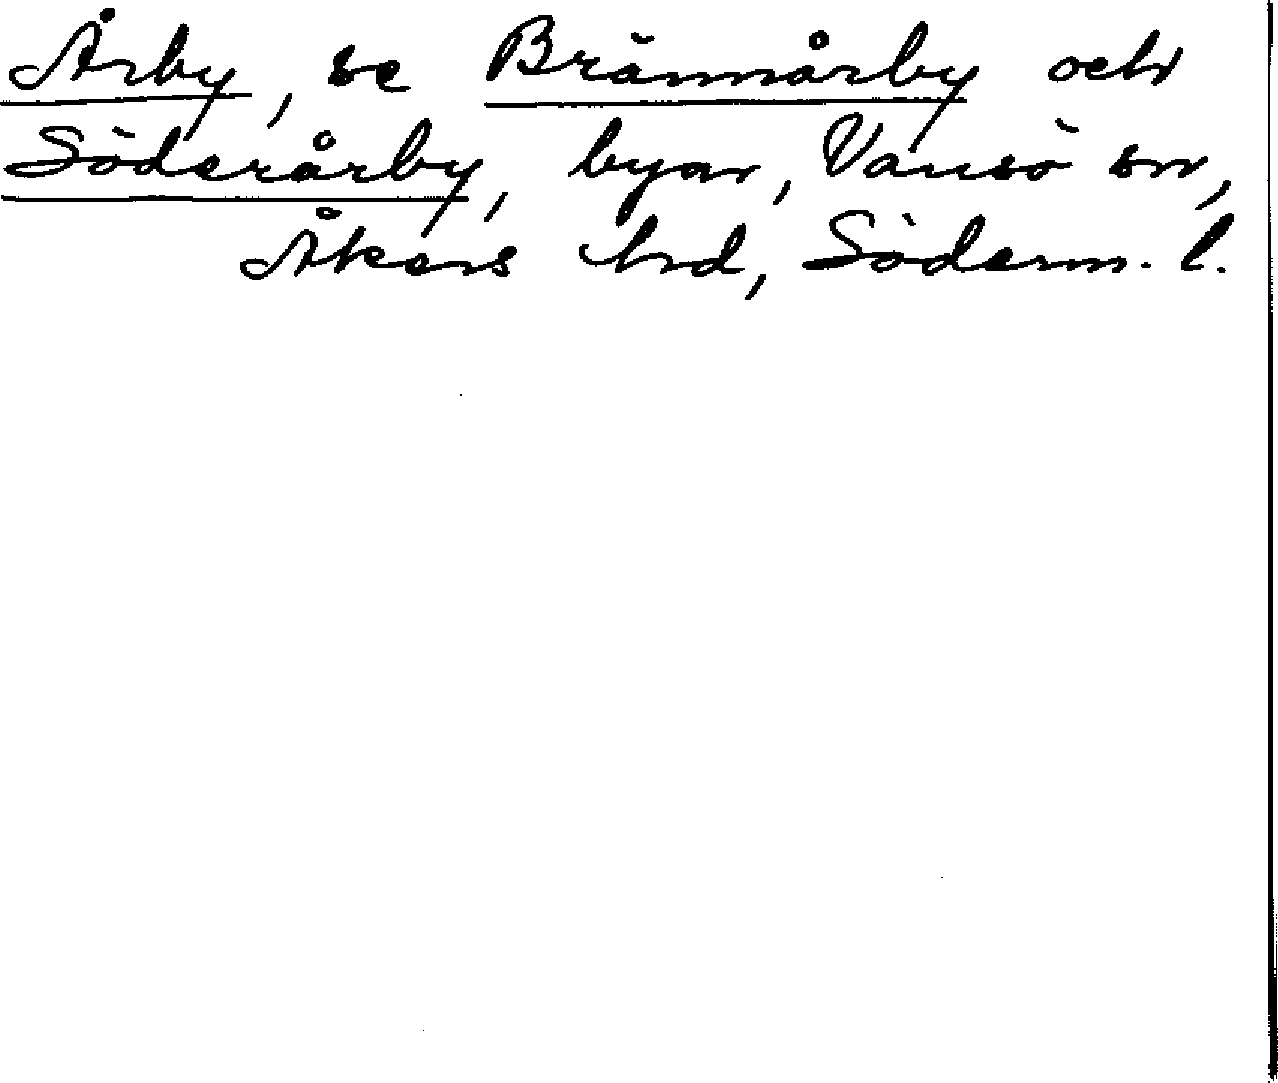 Årby, se Brännårby och
Söderårby, byar, Vansö sn,
Åkers hd, Söderm. l.